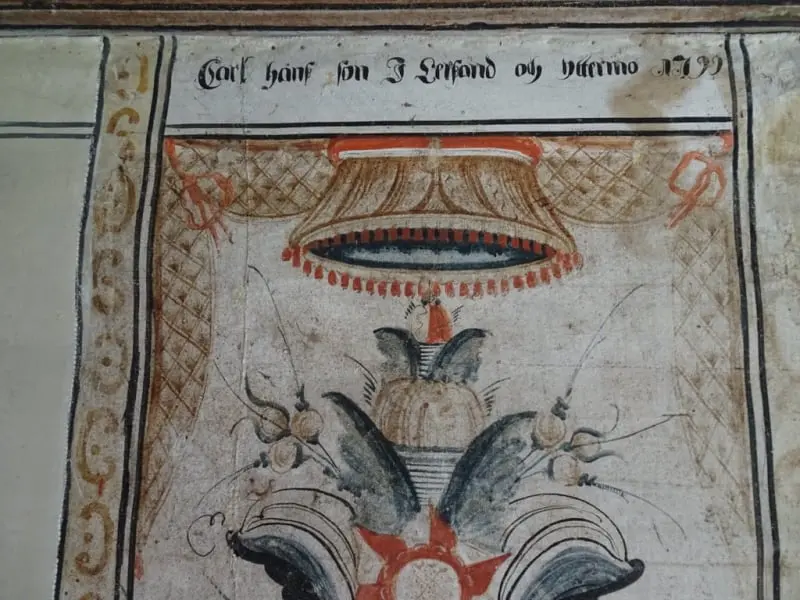 Carl hanß son I Lerßand och yttermo 1799